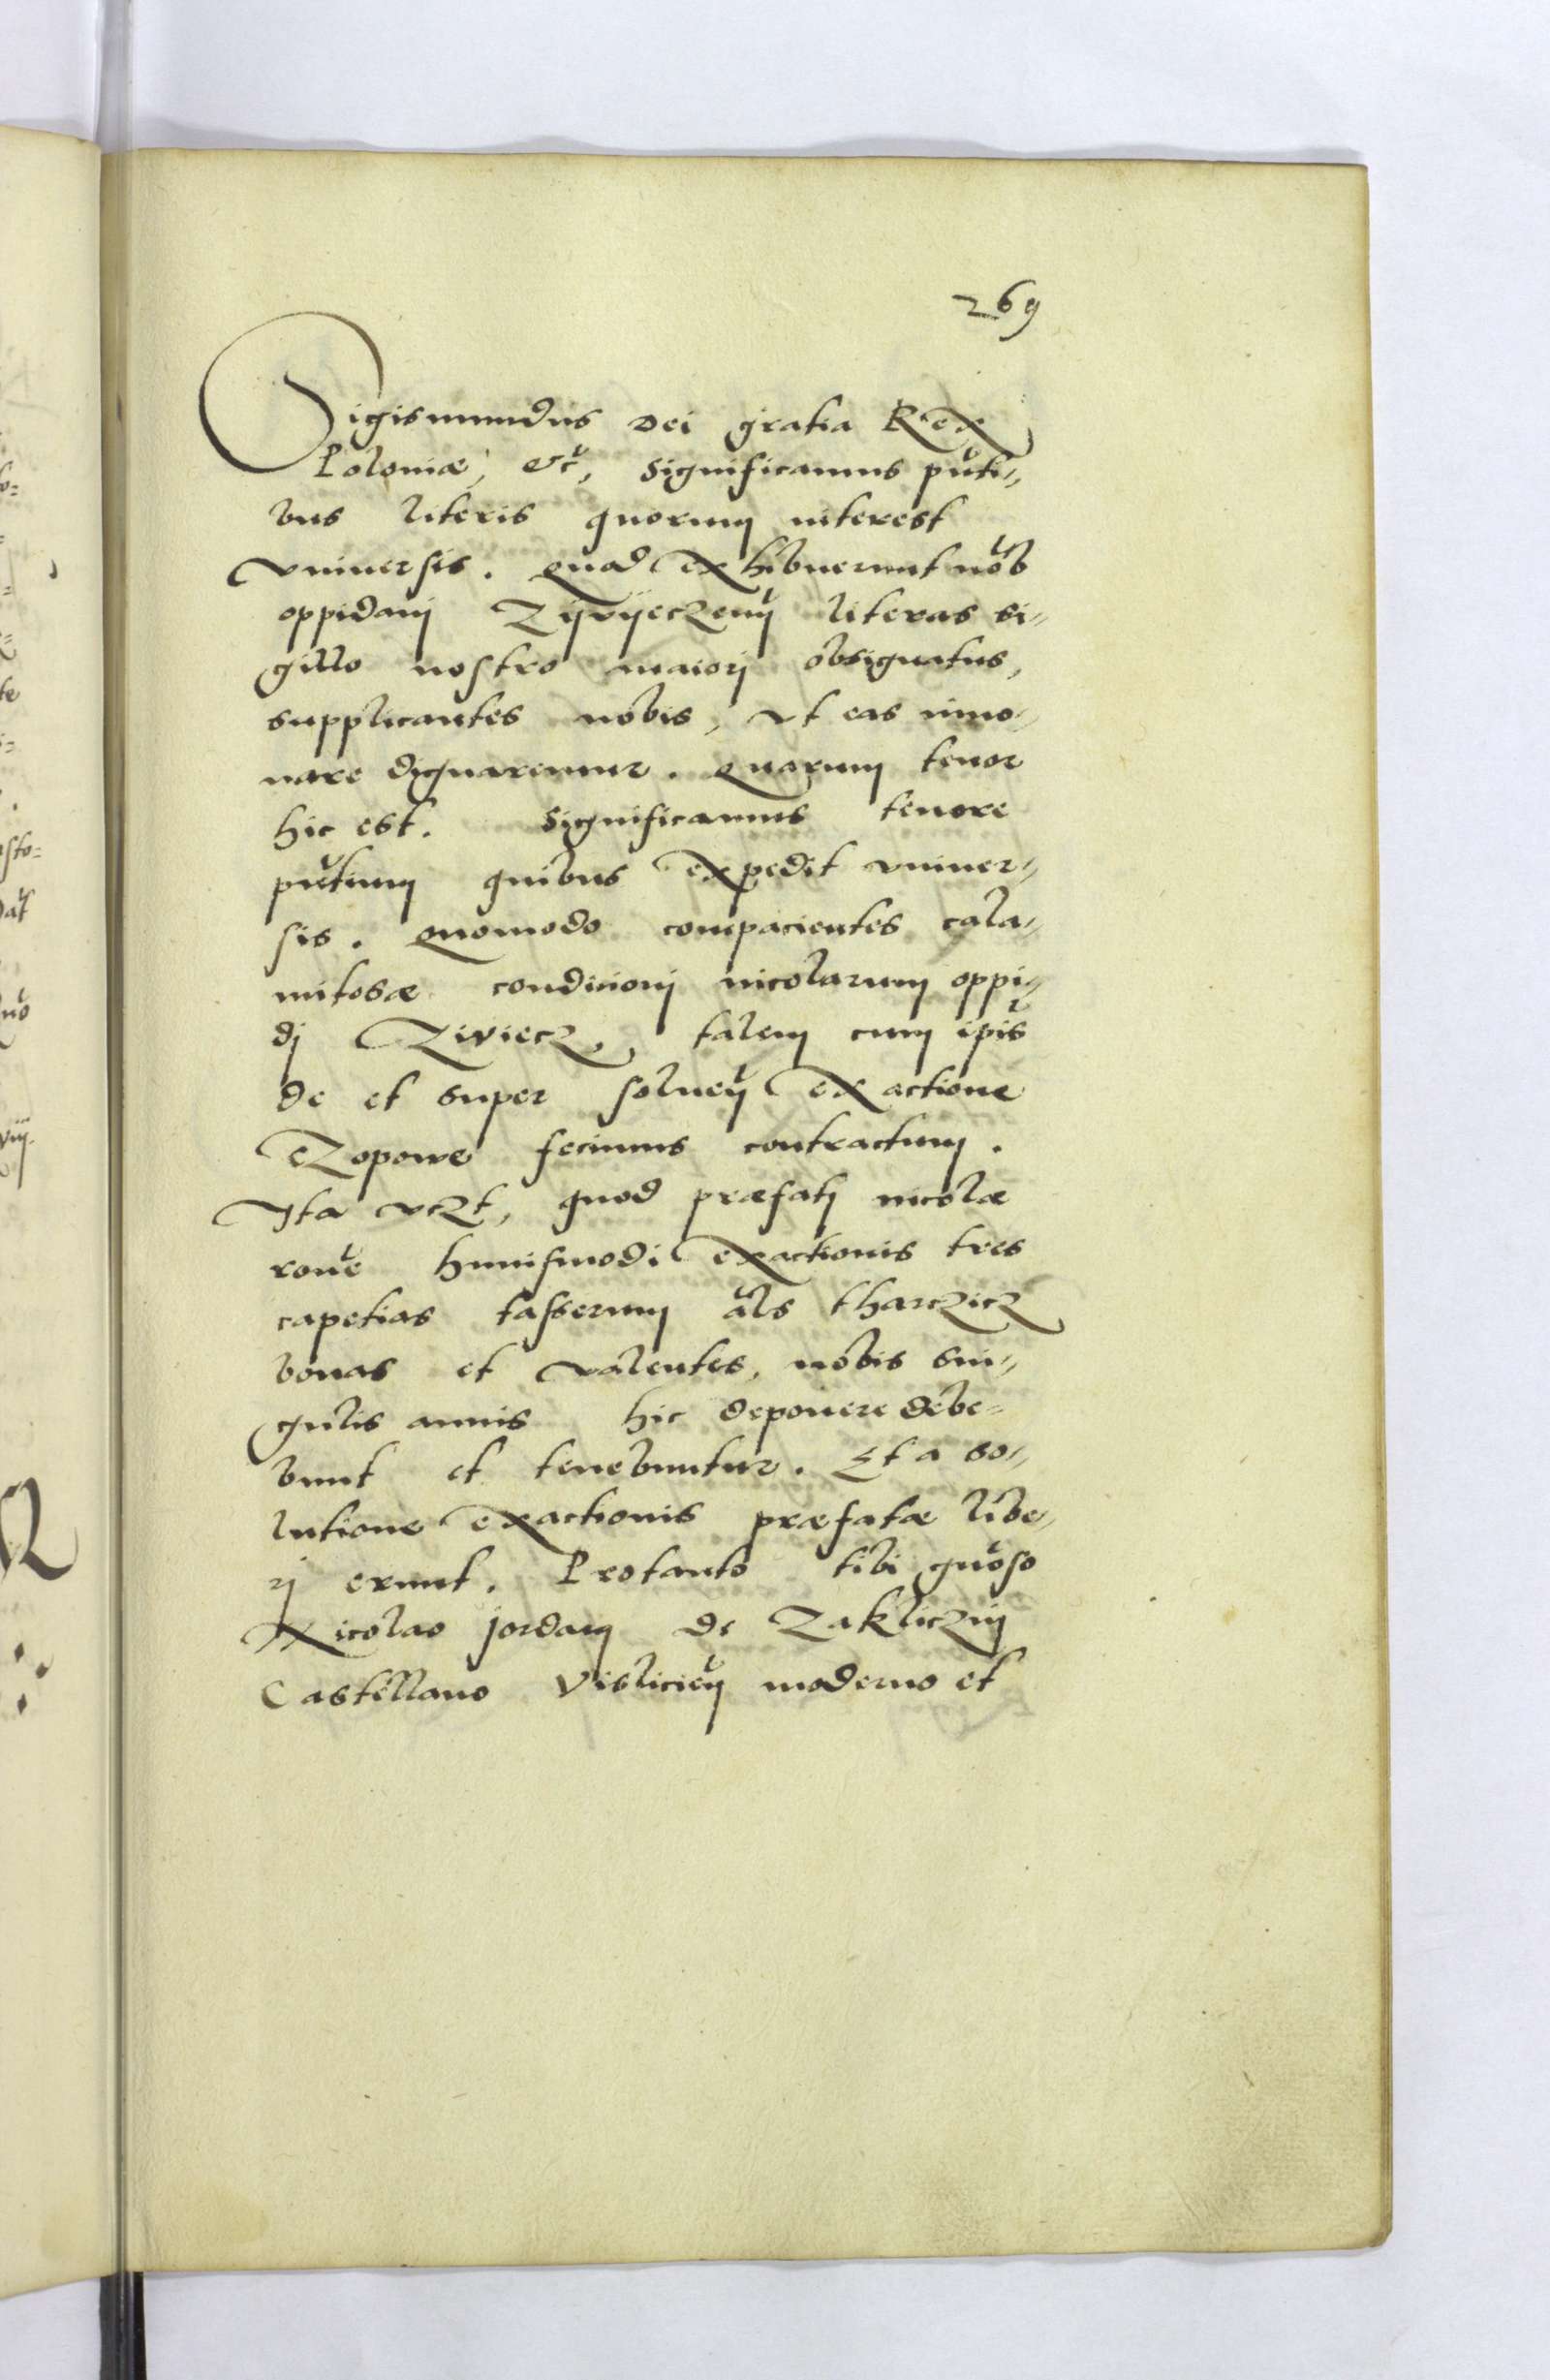 269
Sigismundus Dei gratia Rex
Poloniæ, &c̃, Significamus pñti„
bus literis quorum interest
vniuersis. Quod exhibuerunt nob̃
oppidani Zÿvÿeczeñ literas si„
gillo nostro maiori obsignatas,
supplicantes nobis, vt eas inno„
uare dignaremur. Quarum tenor
hic est. Significamus tenore
pñtium quibus expedit vniuer„
sis. Quomodo compacientes cala„
mitosæ condicioni incolarum oppi„
di Ziviecz, talem cum ip̃is
de et super solueñ exactione
Czopowe fecimus contractum.
Ita vczt, quod præfati incolæ
roñe huiusmodi exactionis tres
capetias tasserum al̃s tharczicz
bonas et valentes, nobis sin„
gulis annis hic deponere debe„
bunt et tenebuntur. Et a so„
lutione exactionis præfatæ libe„
ri erunt. Protanto tibi gñoso
Nicolao Jordan de Zakliczin
Castellano Vislicieñ moderno et